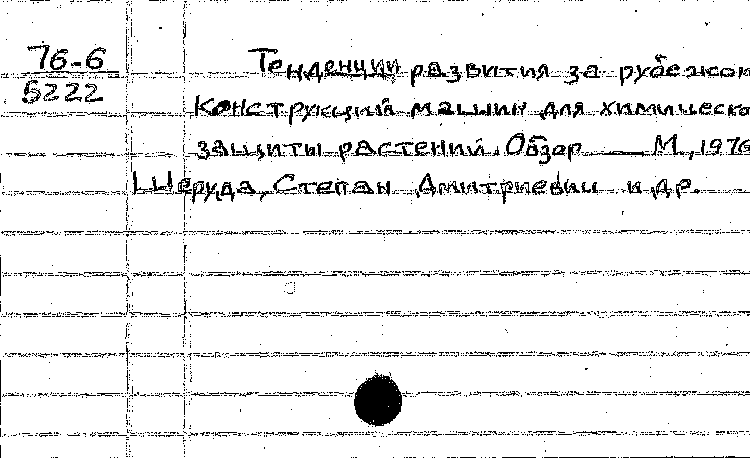 76-6
5222
Тенденции развития за рубежом
конструкций машин для химическо
защиты растений. Обзор — М., 1976
Шеруда, Степан Дмитриевич и др.